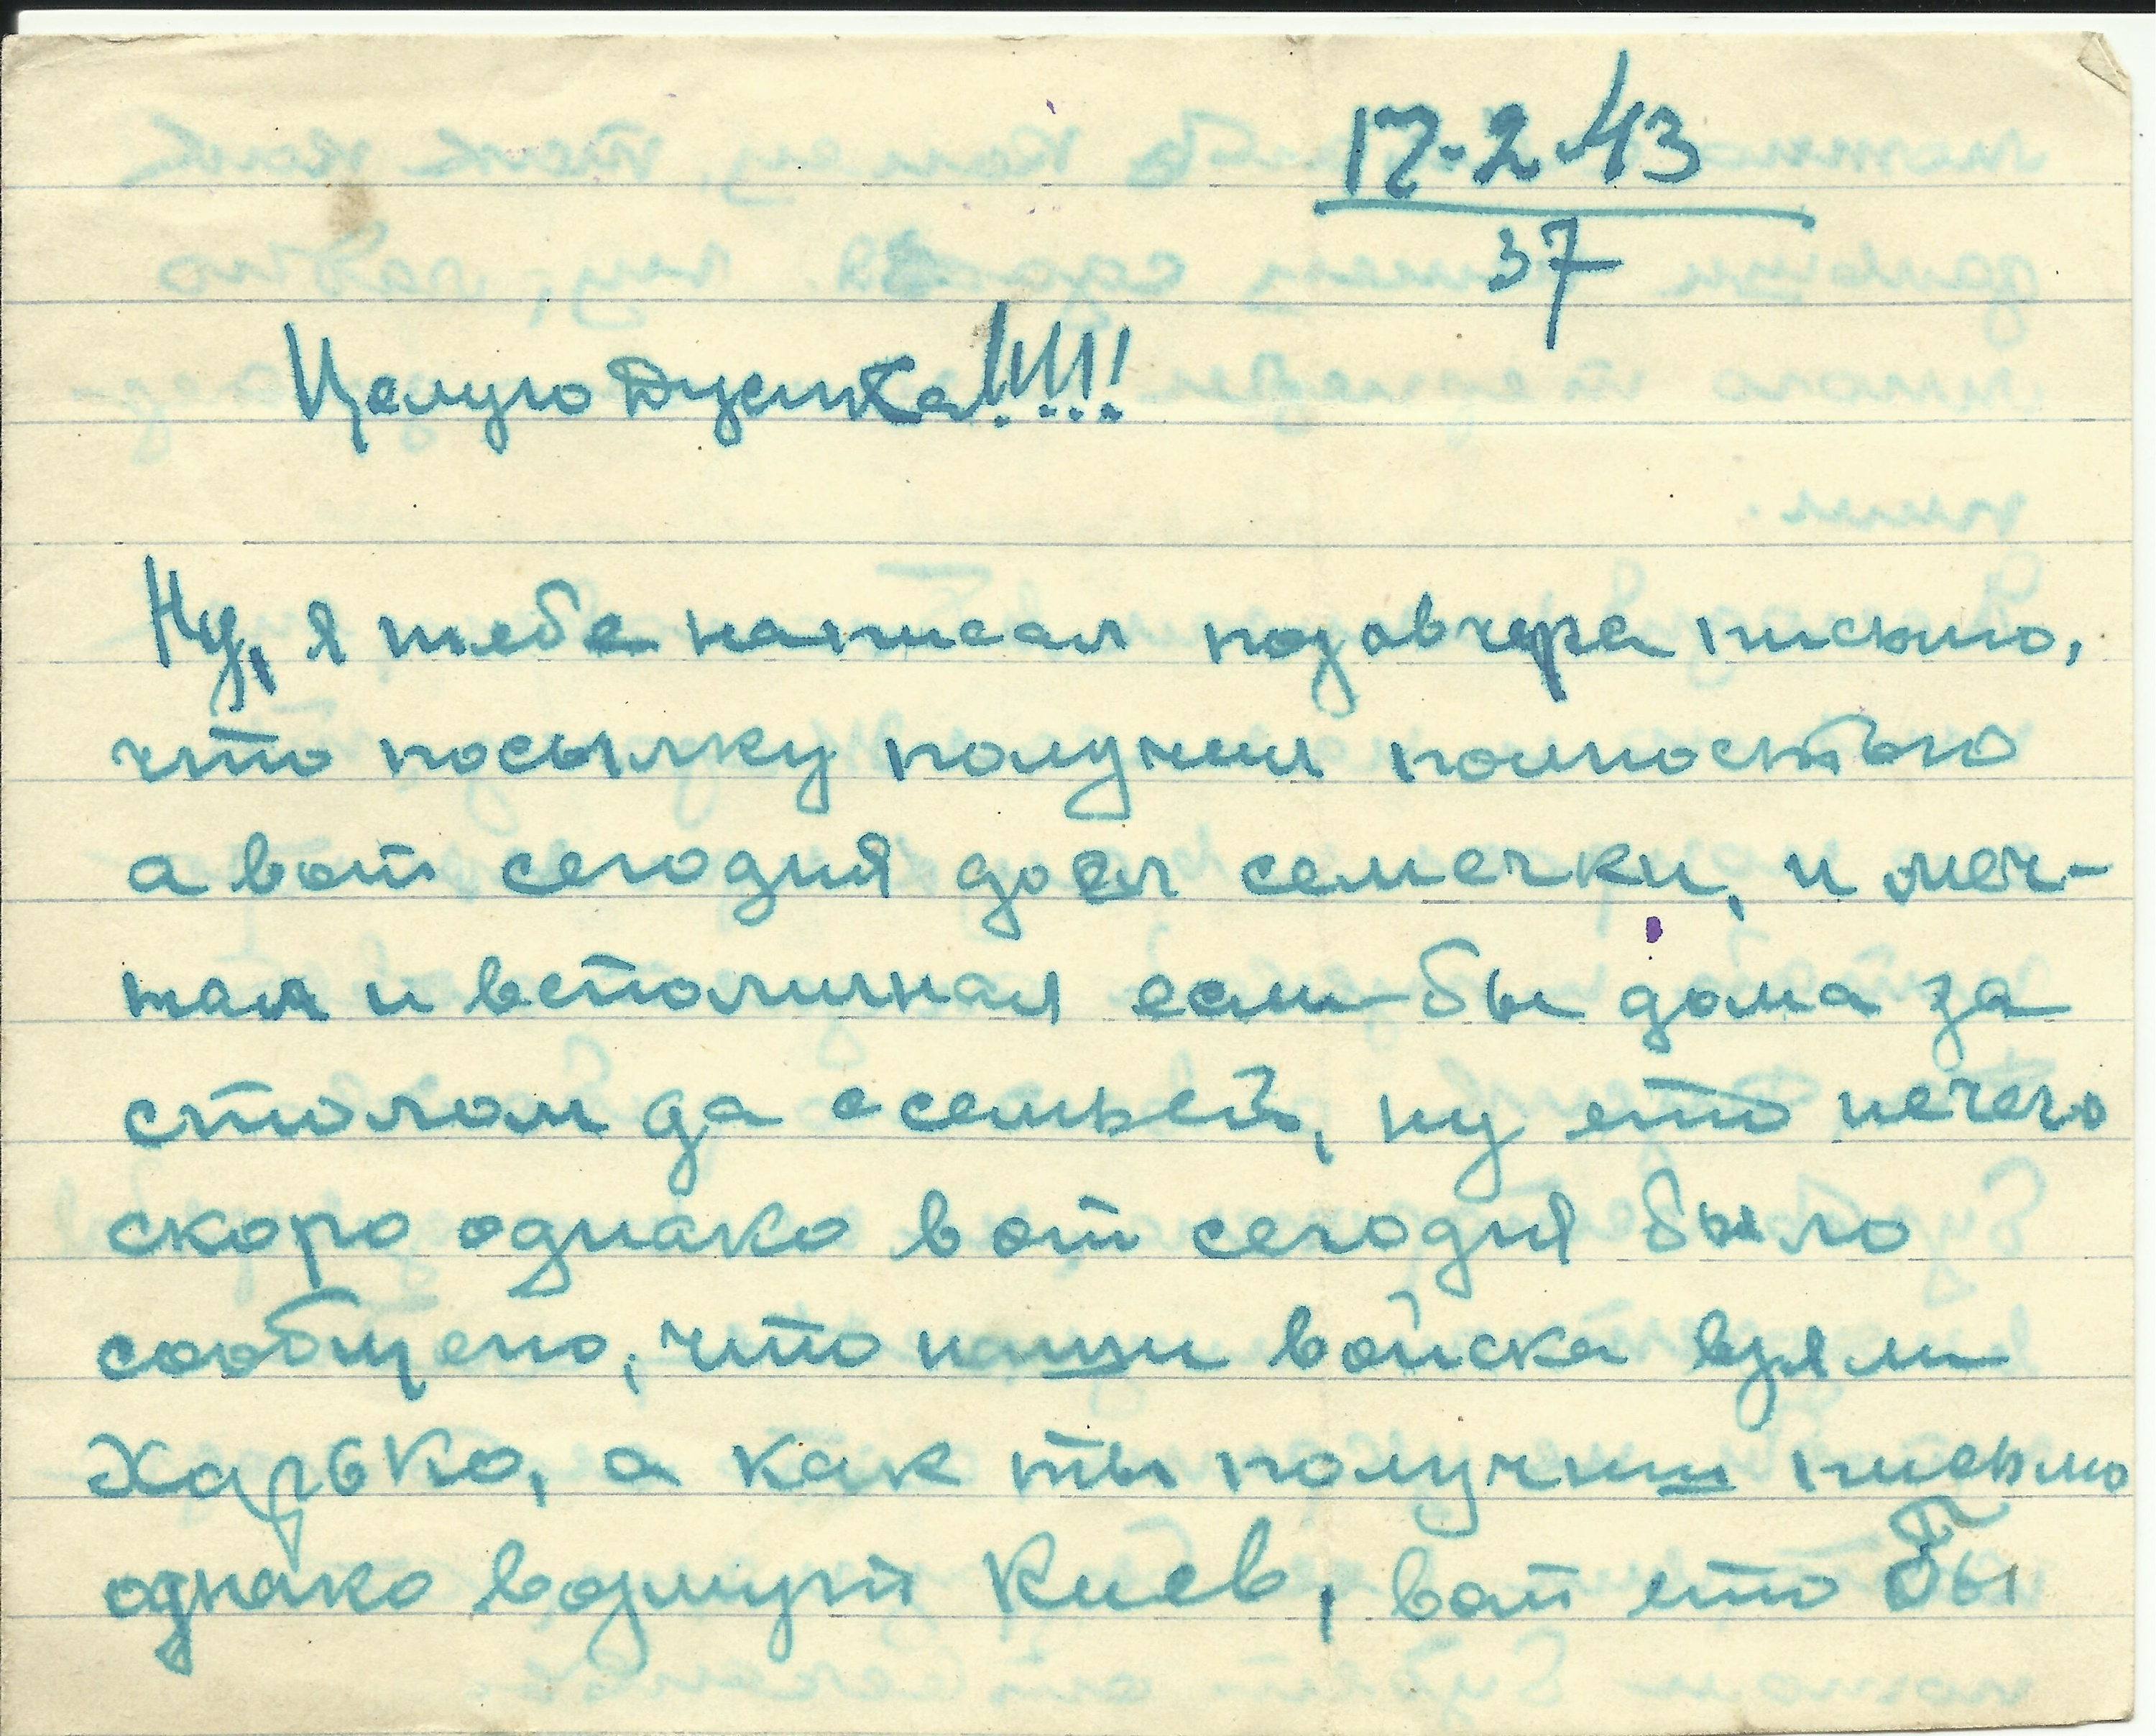 17.2.43
37
Целую Дусика!!!!!
Ну, я тебе написал позавчера письмо,
что посылку получил полностью
а вот сегодня доел семечки, и меч-
тал и вспоминал если-бы дома за
столом да с семьей, ну ето нечего
скоро однако вот сегодня было
сообщено, что наши войска взяли
Харько, а как ты получиш письмо
однако возмут Киев, вот ето бы